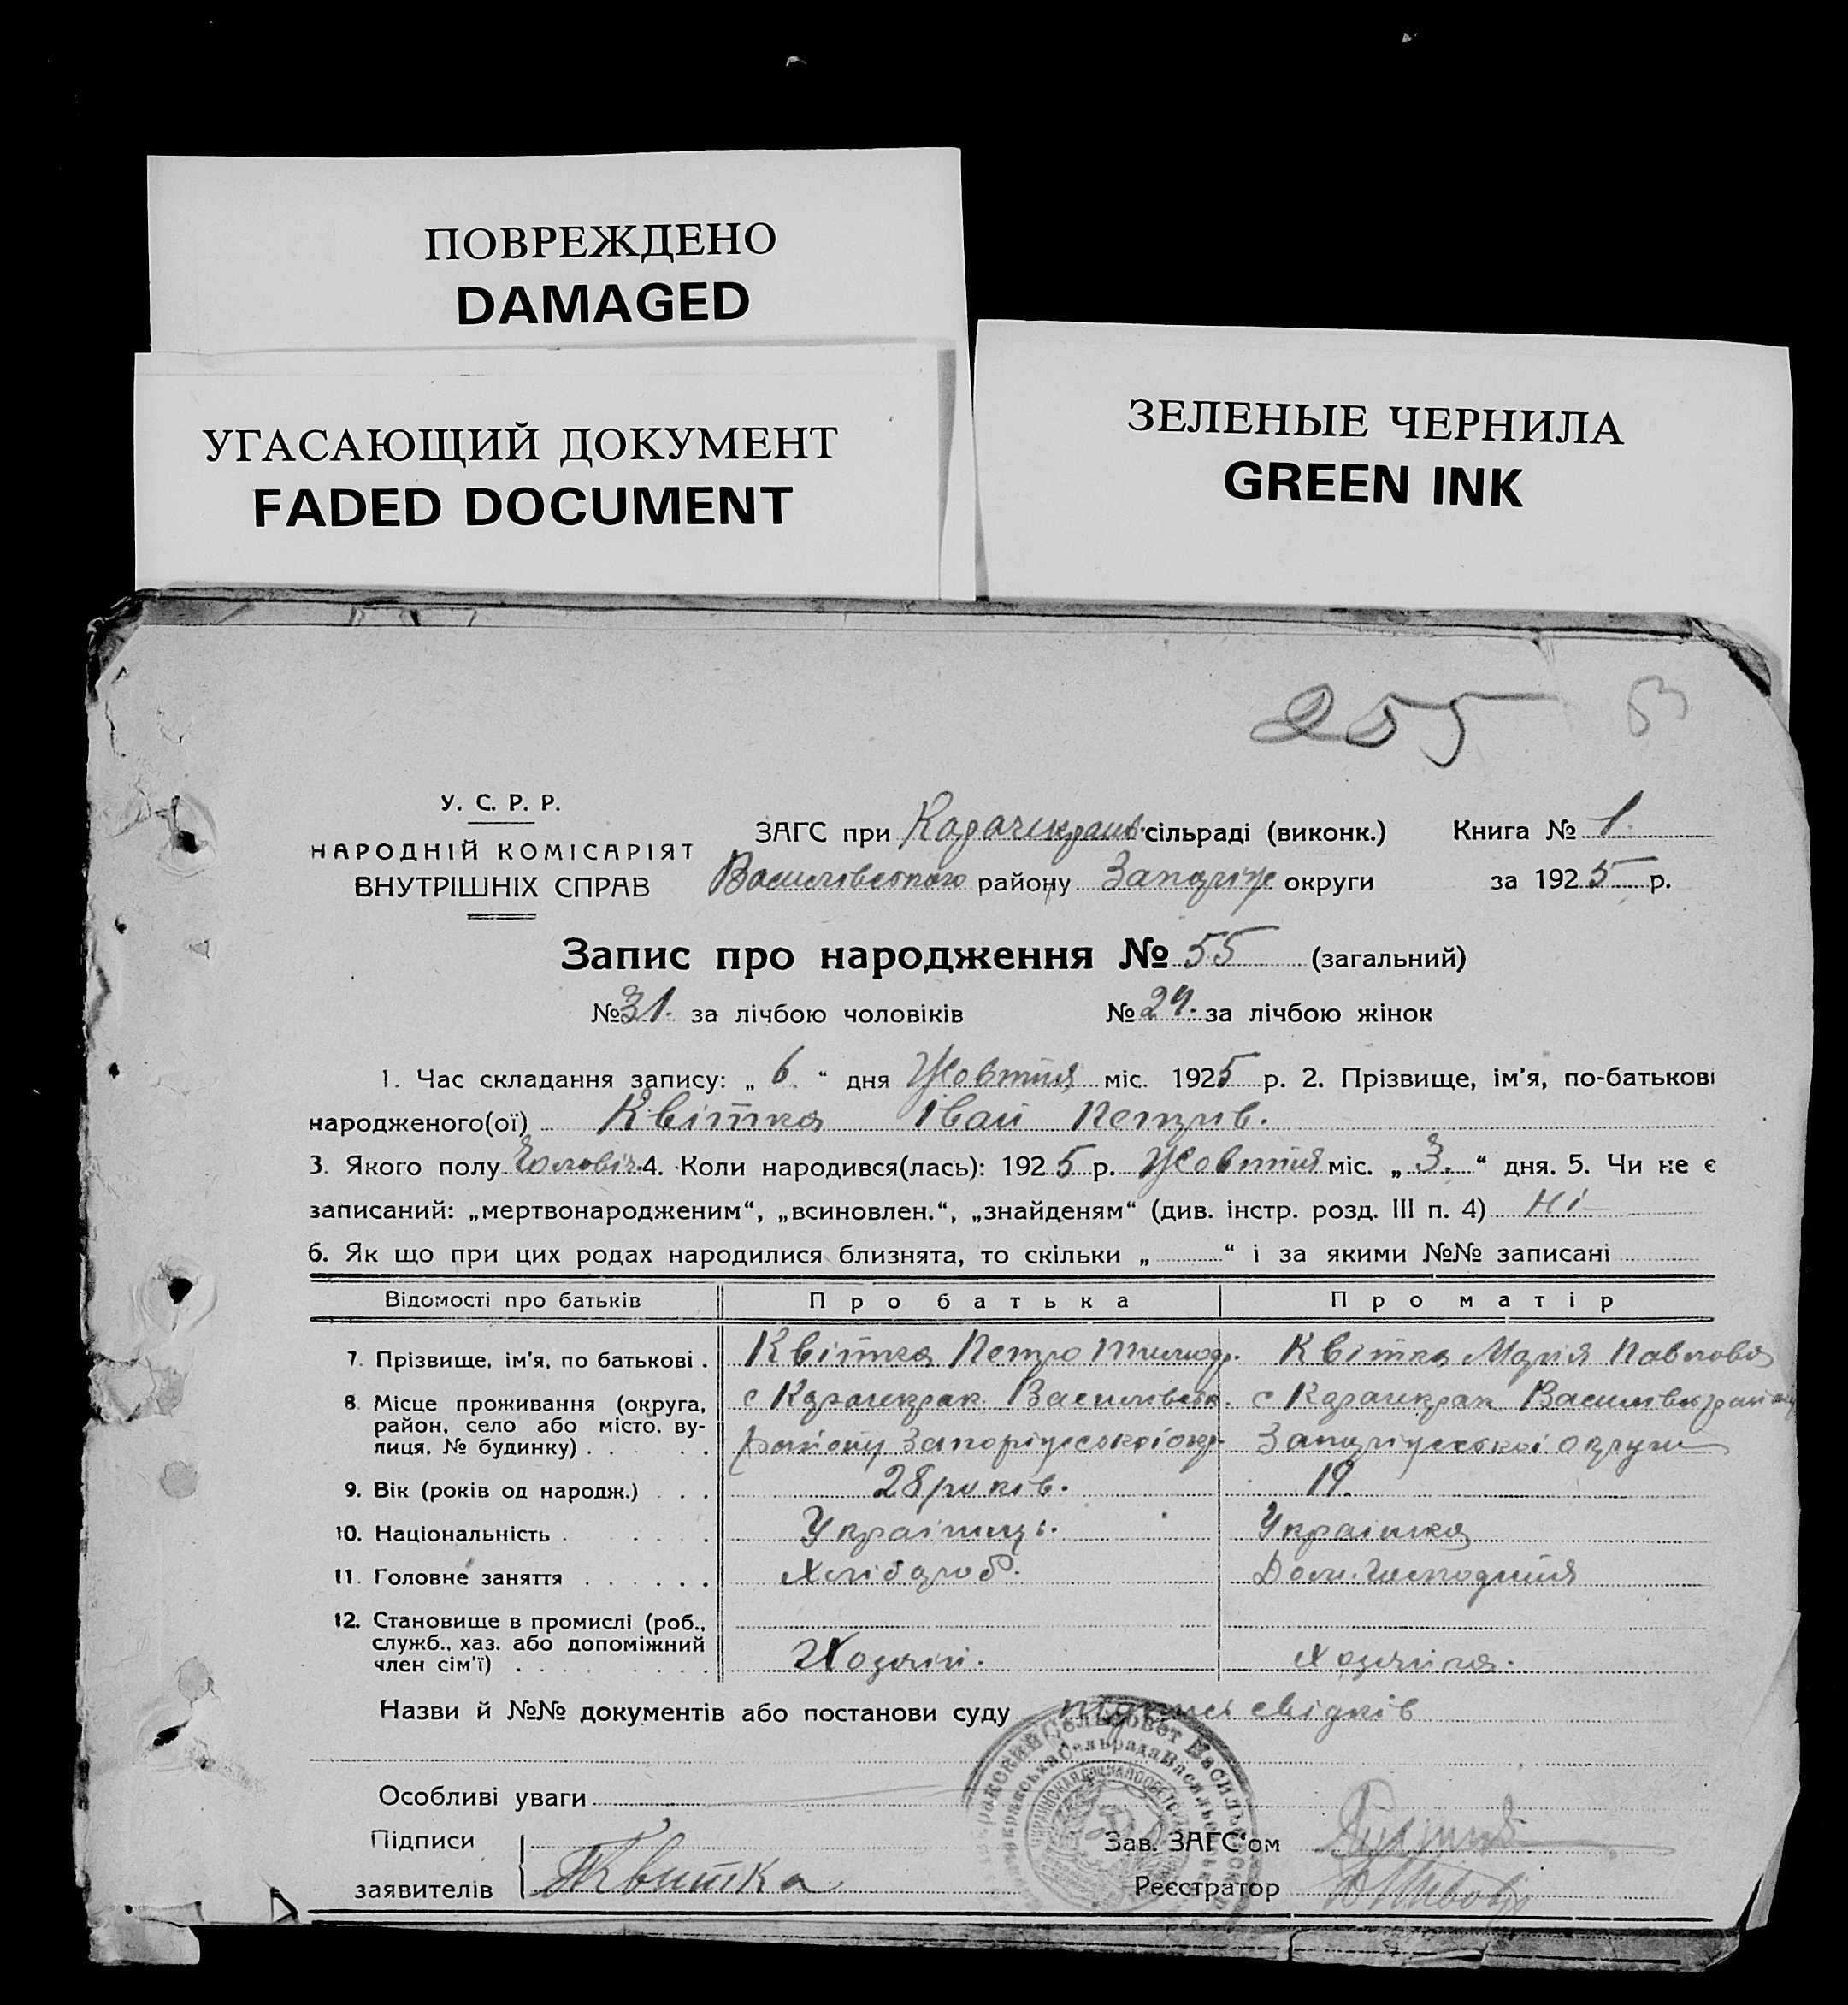 ПОВРЕЖДЕНО
DAMAGED
УГАСАЮЩИЙ ДОКУМЕНТ
FADED DOCUMENT
ЗЕЛЕНЫЕ ЧЕРНИЛА
GREEN INK
255
У. С. Р. Р.
НАРОДНІЙ КОМІСАРІЯТ
ВНУТРІШНІХ СПРАВ
ЗАГС при Карачекрак. сільраді (виконк.) Книга № 1.
Василівського району Запоріж округи за 1925 р.
Запис про народження № 55 (загальний)
№ 31. за лічбою чоловіків № 24. за лічбою жінок
1. Час складання запису: „ 6 “ дня Жовтня міс. 1925 р. 2. Прізвище, ім'я, по-батькові
народженого(ої) Квітка Іван Петров.
3. Якого полу Чоловіч. 4. Коли народився(лась): 1925 р. Жовтня міс. „ 3. “ дня. 5. Чи не є
записаний: „мертвонародженим“, „всиновлен.“, „знайденям“ (див. інстр. розд. III п. 4) Ні
6. Як що при цих родах народилися близнята, то скільки „ “ і за якими №№ записані
Відомості про батьків Про батька Про матір
7. Прізвище, ім'я, по батькові . Квітка Петро Квітка Марія Павлова
8. Місце проживання (округа, с Карачекрак Василівськ. с Карачекрак Василівськ району
район, село або місто, ву-
лиця, № будинку) . . . . району Запоріжської окр. Запоріжської округи
9. Вік (років од народж.) . . . 28 років. 19.
10. Національність . . . . . Українець. Українка
11. Головне заняття . . . . . . Хлібороб. Дом. Господиня
12. Становище в промислі (роб.,
служб., хаз. або допоміжний
член сім'ї) . . . . . . . . . Хозяїн. Хозяйка.
Назви й №№ документів або постанови суду підпись свідків
Особливі уваги
Підписи
заявителів Квитка
Зав. ЗАГС'ом
Реєстратор